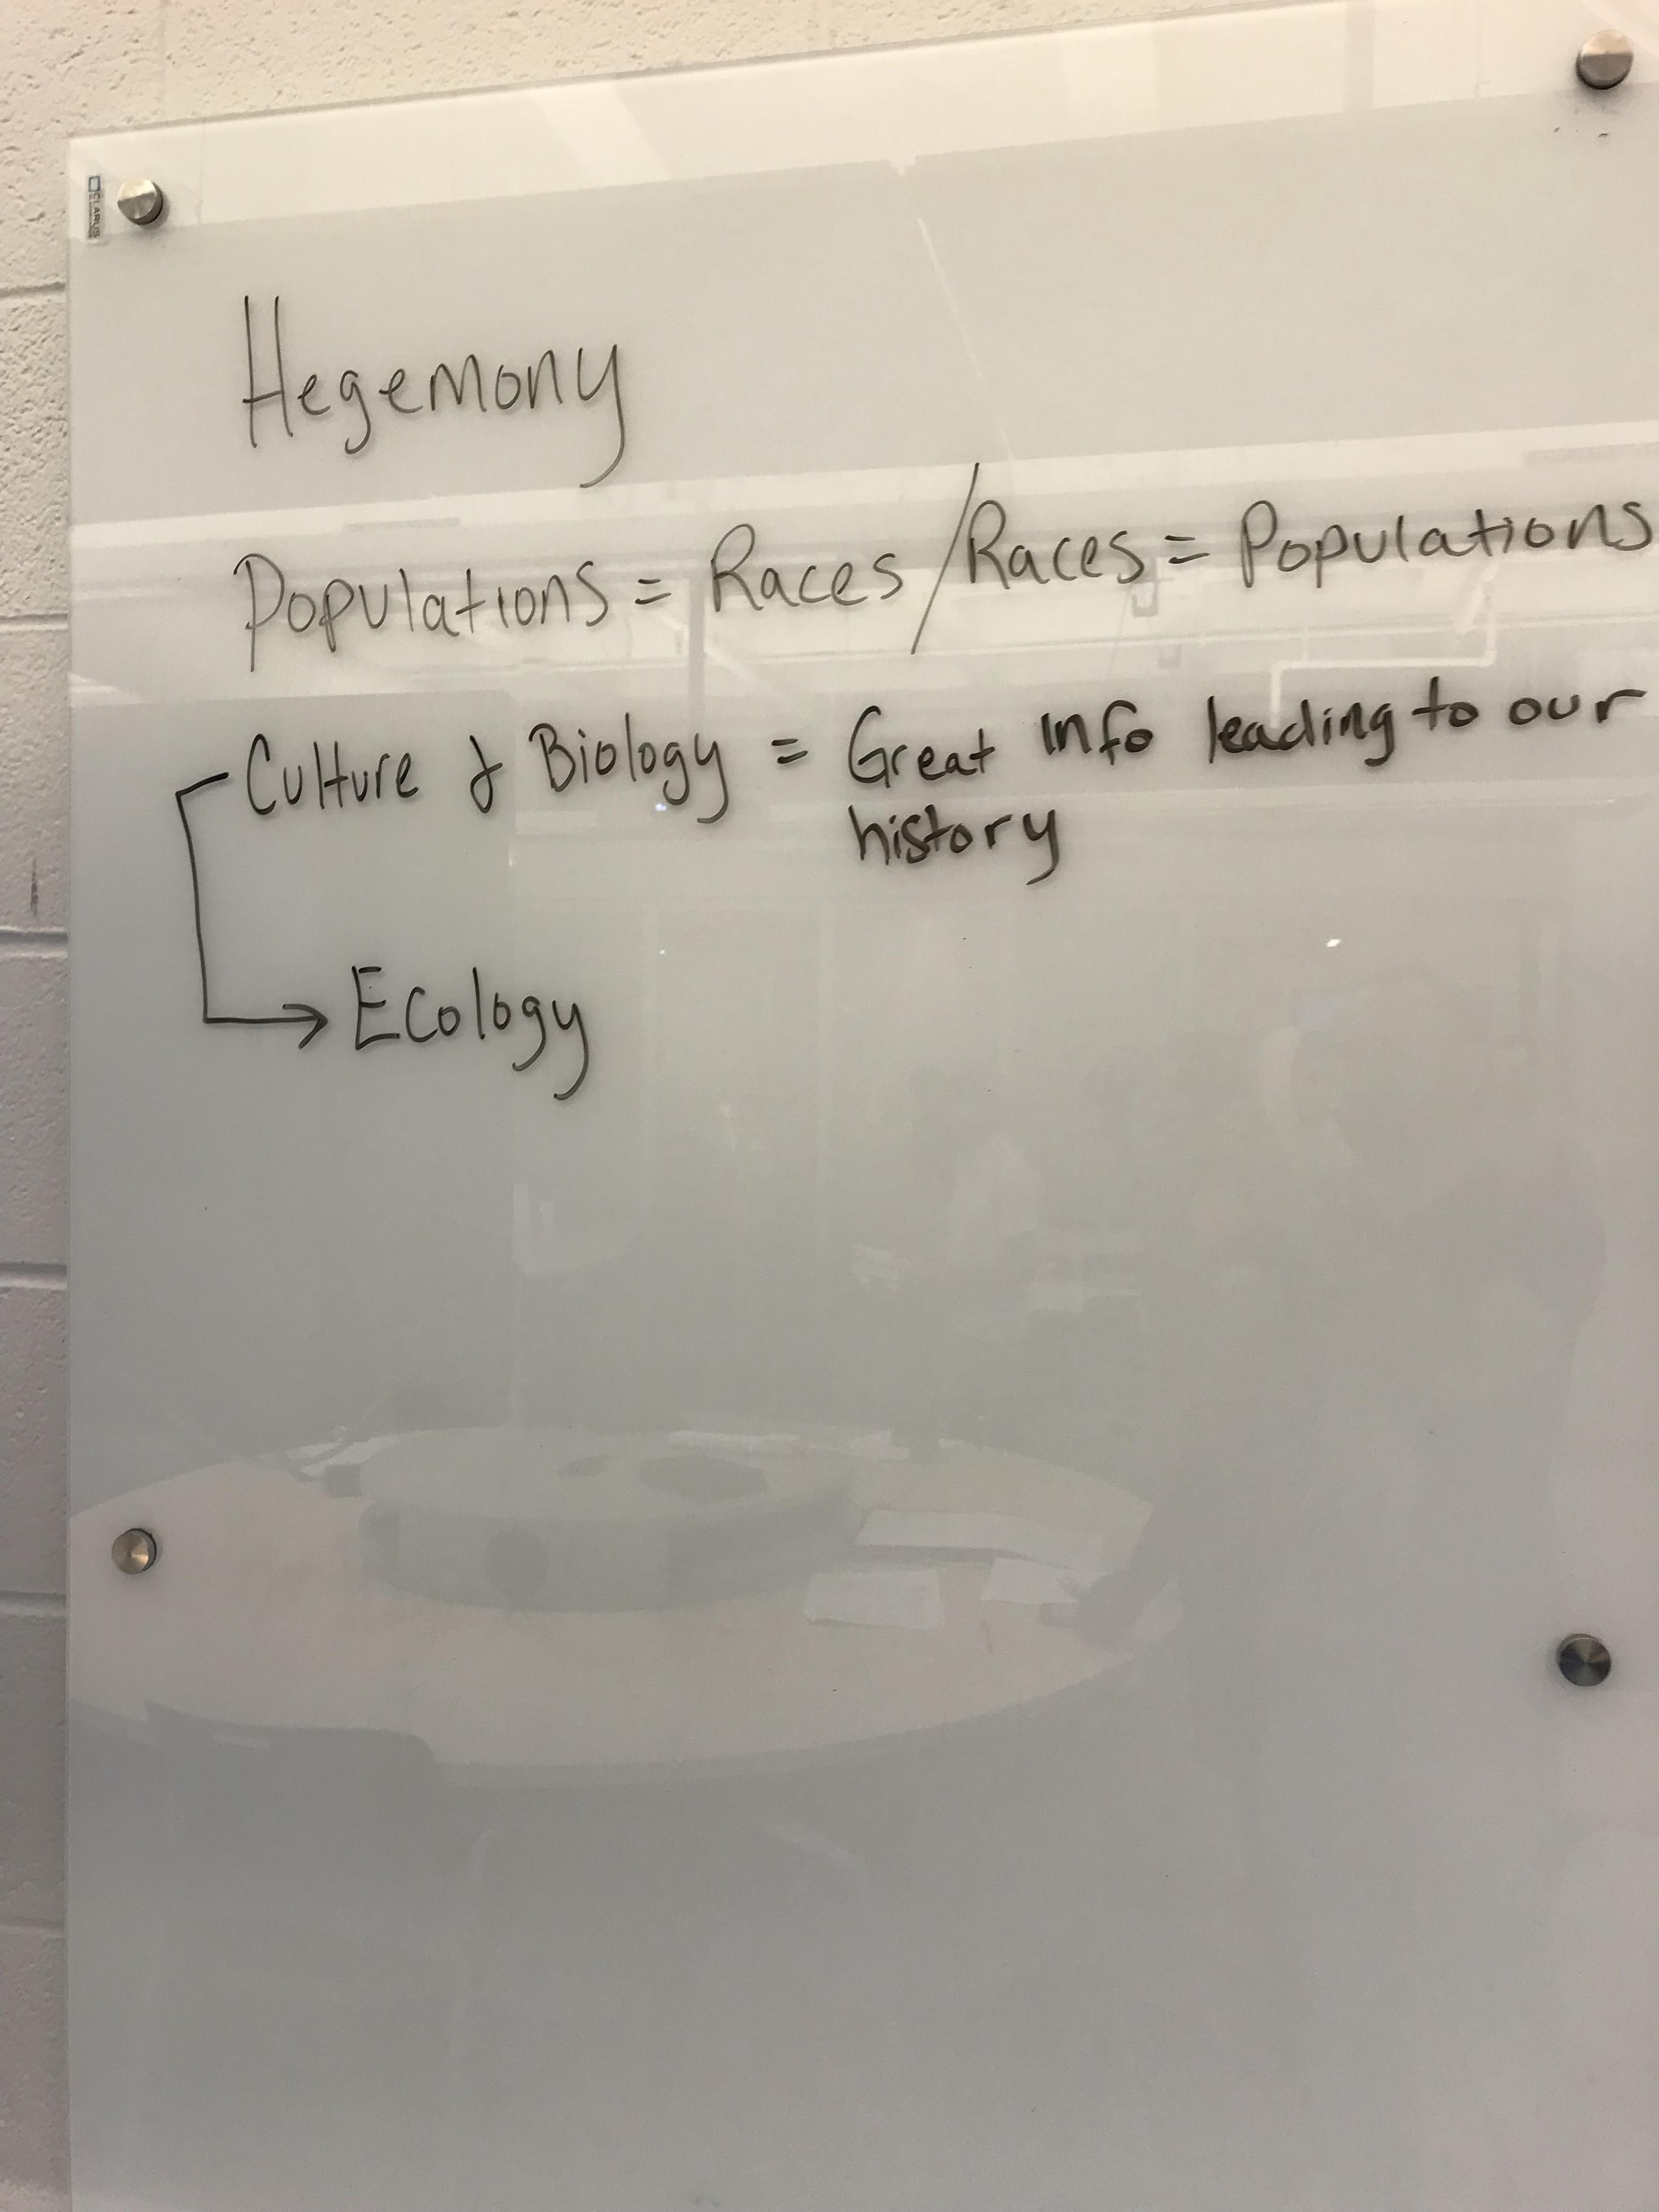 CLARUS
Hegemony
Populations = Races / Races = Populations
Culture & Biology = Great info leading to our
history
→ Ecology